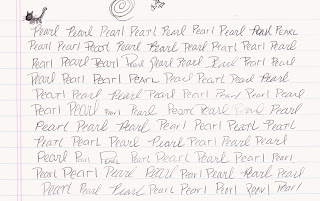 Pearl Pearl Pearl Pearl Pearl Pearl Pearl Pearl
Pearl Pearl Pearl Pearl Pearl Pearl Pearl Pearl Pearl
Pearl Pearl Pearl Pearl Pearl Pearl Pearl Pearl Pearl
Pearl Pearl Pearl Pearl Pearl Pearl Pearl Pearl
Pearl Pearl Pearl Pearl Pearl Pearl Pearl Pearl
Pearl Pearl Pearl Pearl Pearl Pearl Pearl Pearl
Pearl Pearl Pearl Pearl Pearl Pearl Pearl
Pearl Pearl Pearl Pearl Pearl Pearl Pearl
Pearl Pearl Pearl Pearl Pearl Pearl Pearl Pearl
Pearl Pearl Pearl Pearl Pearl Pearl Pearl Pearl
Pearl Pearl Pearl Pearl Pearl Pearl Pearl Pearl